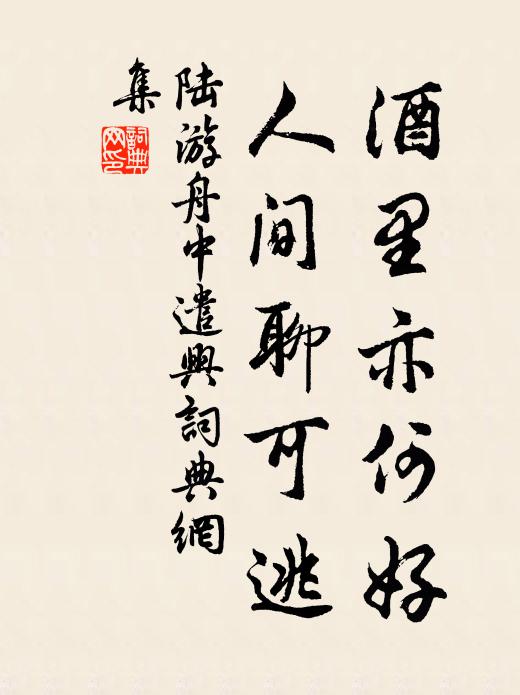 酒里亦何好
人间聊可逃
陆游舟中遣興詞典網
集
詞典
网印